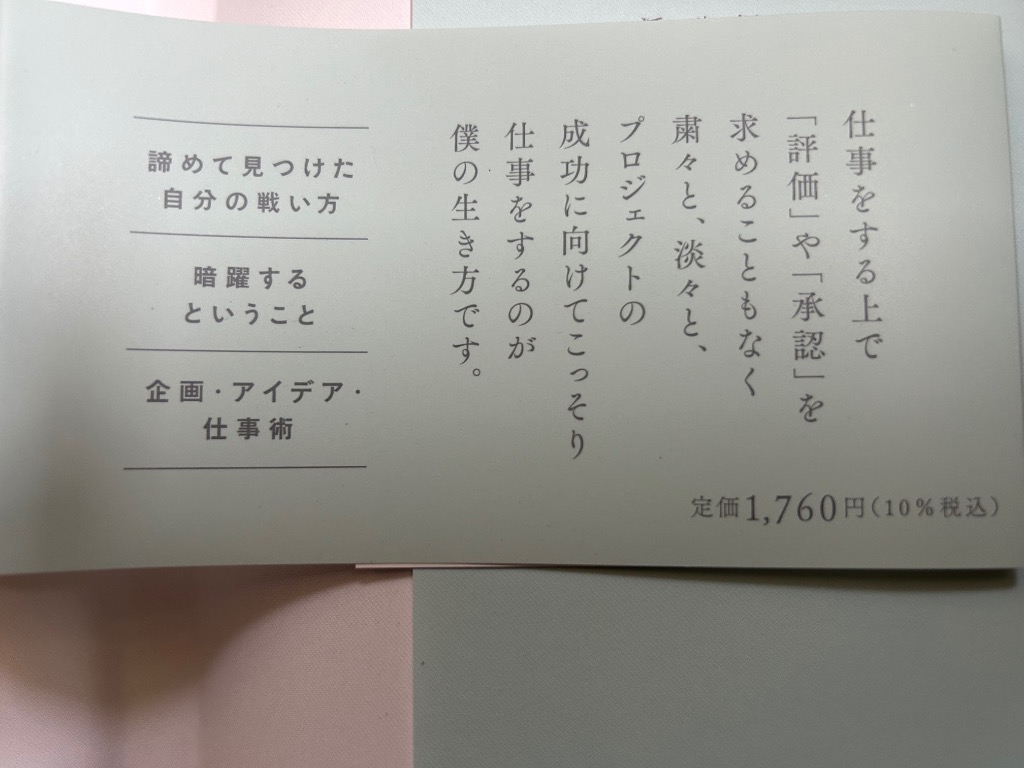 仕事をする上で
「評価」や「承認」を
求めることもなく
粛々と、淡々と、
プロジェクトの
成功に向けてこっそり
仕事をするのが
僕の生き方です。
諦めて見つけた
自分の戦い方
暗躍する
ということ
企画・アイデア・
仕事術
定価1,760円(10%税込)